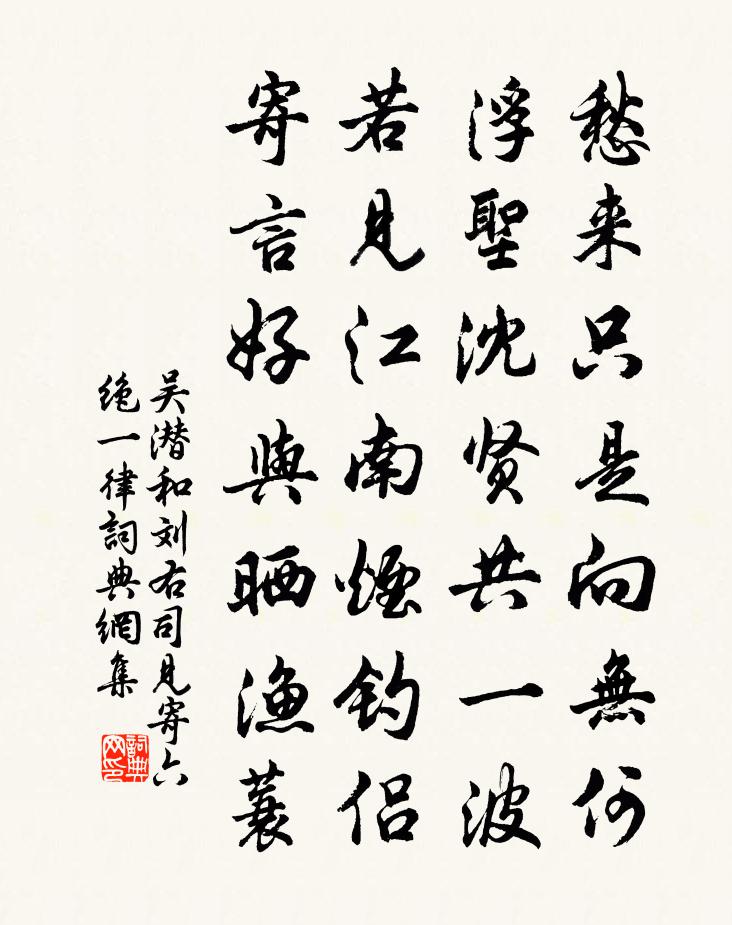 愁来只是向無何
浮聖沈贤共一波
若見江南煙钓侣
寄言好與晒渔蓑
吴潜和刘右司見寄六
绝一律詞典網集
詞典
网印